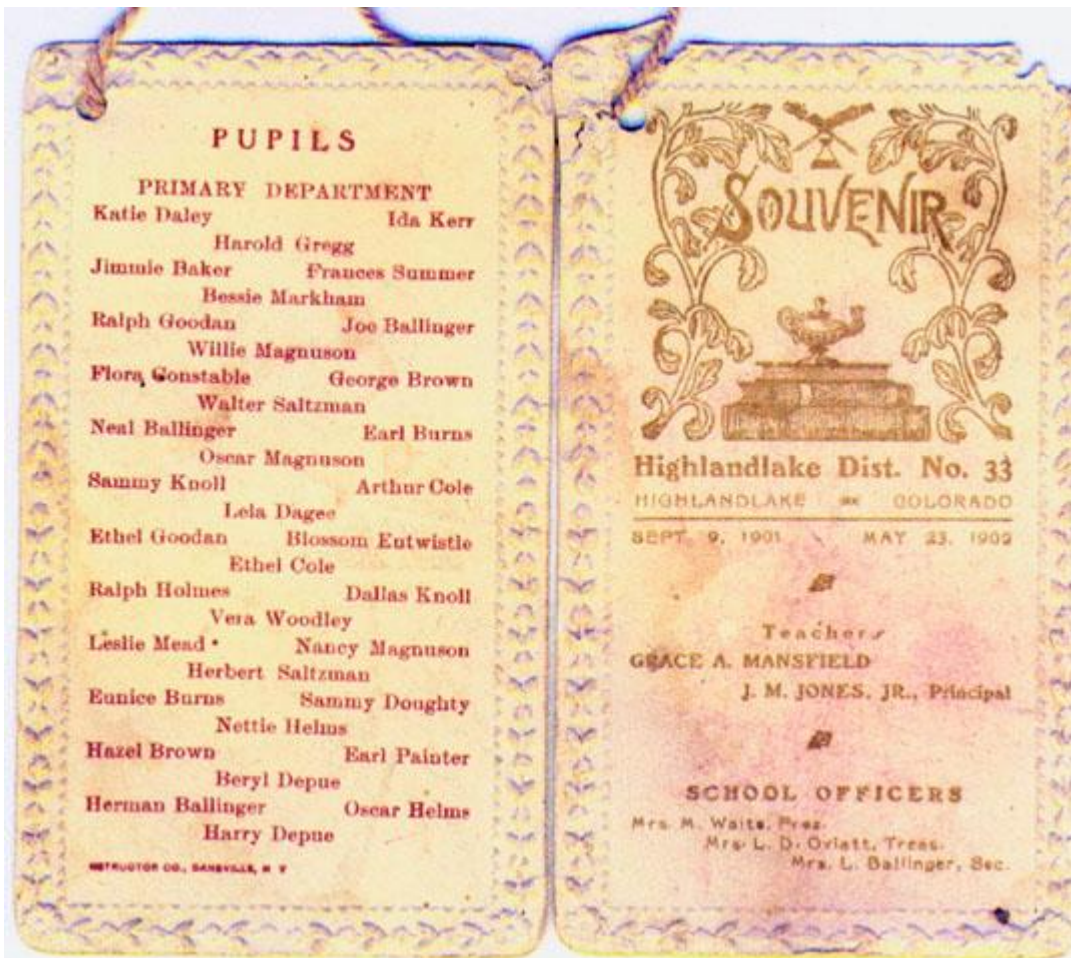 PUPILS
PRIMARY DEPARTMENT
Katie Daley Ida Kerr
Harold Gregg
Jimmie Baker Frances Summer
Bessie Markham
Ralph Goodan Joe Ballinger
Willie Magnuson
Flora Constable George Brown
Walter Saltzman
Neal Ballinger Earl Burns
Oscar Magnuson
Sammy Knoll Arthur Cole
Lela Dagee
Ethel Goodan Blossom Entwistle
Ethel Cole
Ralph Holmes Dallas Knoll
Vera Woodley
Leslie Mead Nancy Magnuson
Herbert Saltzman
Eunice Burns Sammy Doughty
Nettie Helms
Hazel Brown Earl Painter
Beryl Depue
Herman Ballinger Oscar Helms
Harry Depue
INSTRUCTOR CO., DANSVILLE, N Y
SOUVENIR
Highlandlake Dist. No. 33
HIGHLANDLAKE COLORADO
SEPT. 9, 1901 MAY 23, 1902
Teachers
GRACE A. MANSFIELD
J. M. JONES, JR., Principal
SCHOOL OFFICERS
Mrs. M. Waite, Pres.
Mrs. L. D. Oviatt, Treas.
Mrs. L. Ballinger, Sec.